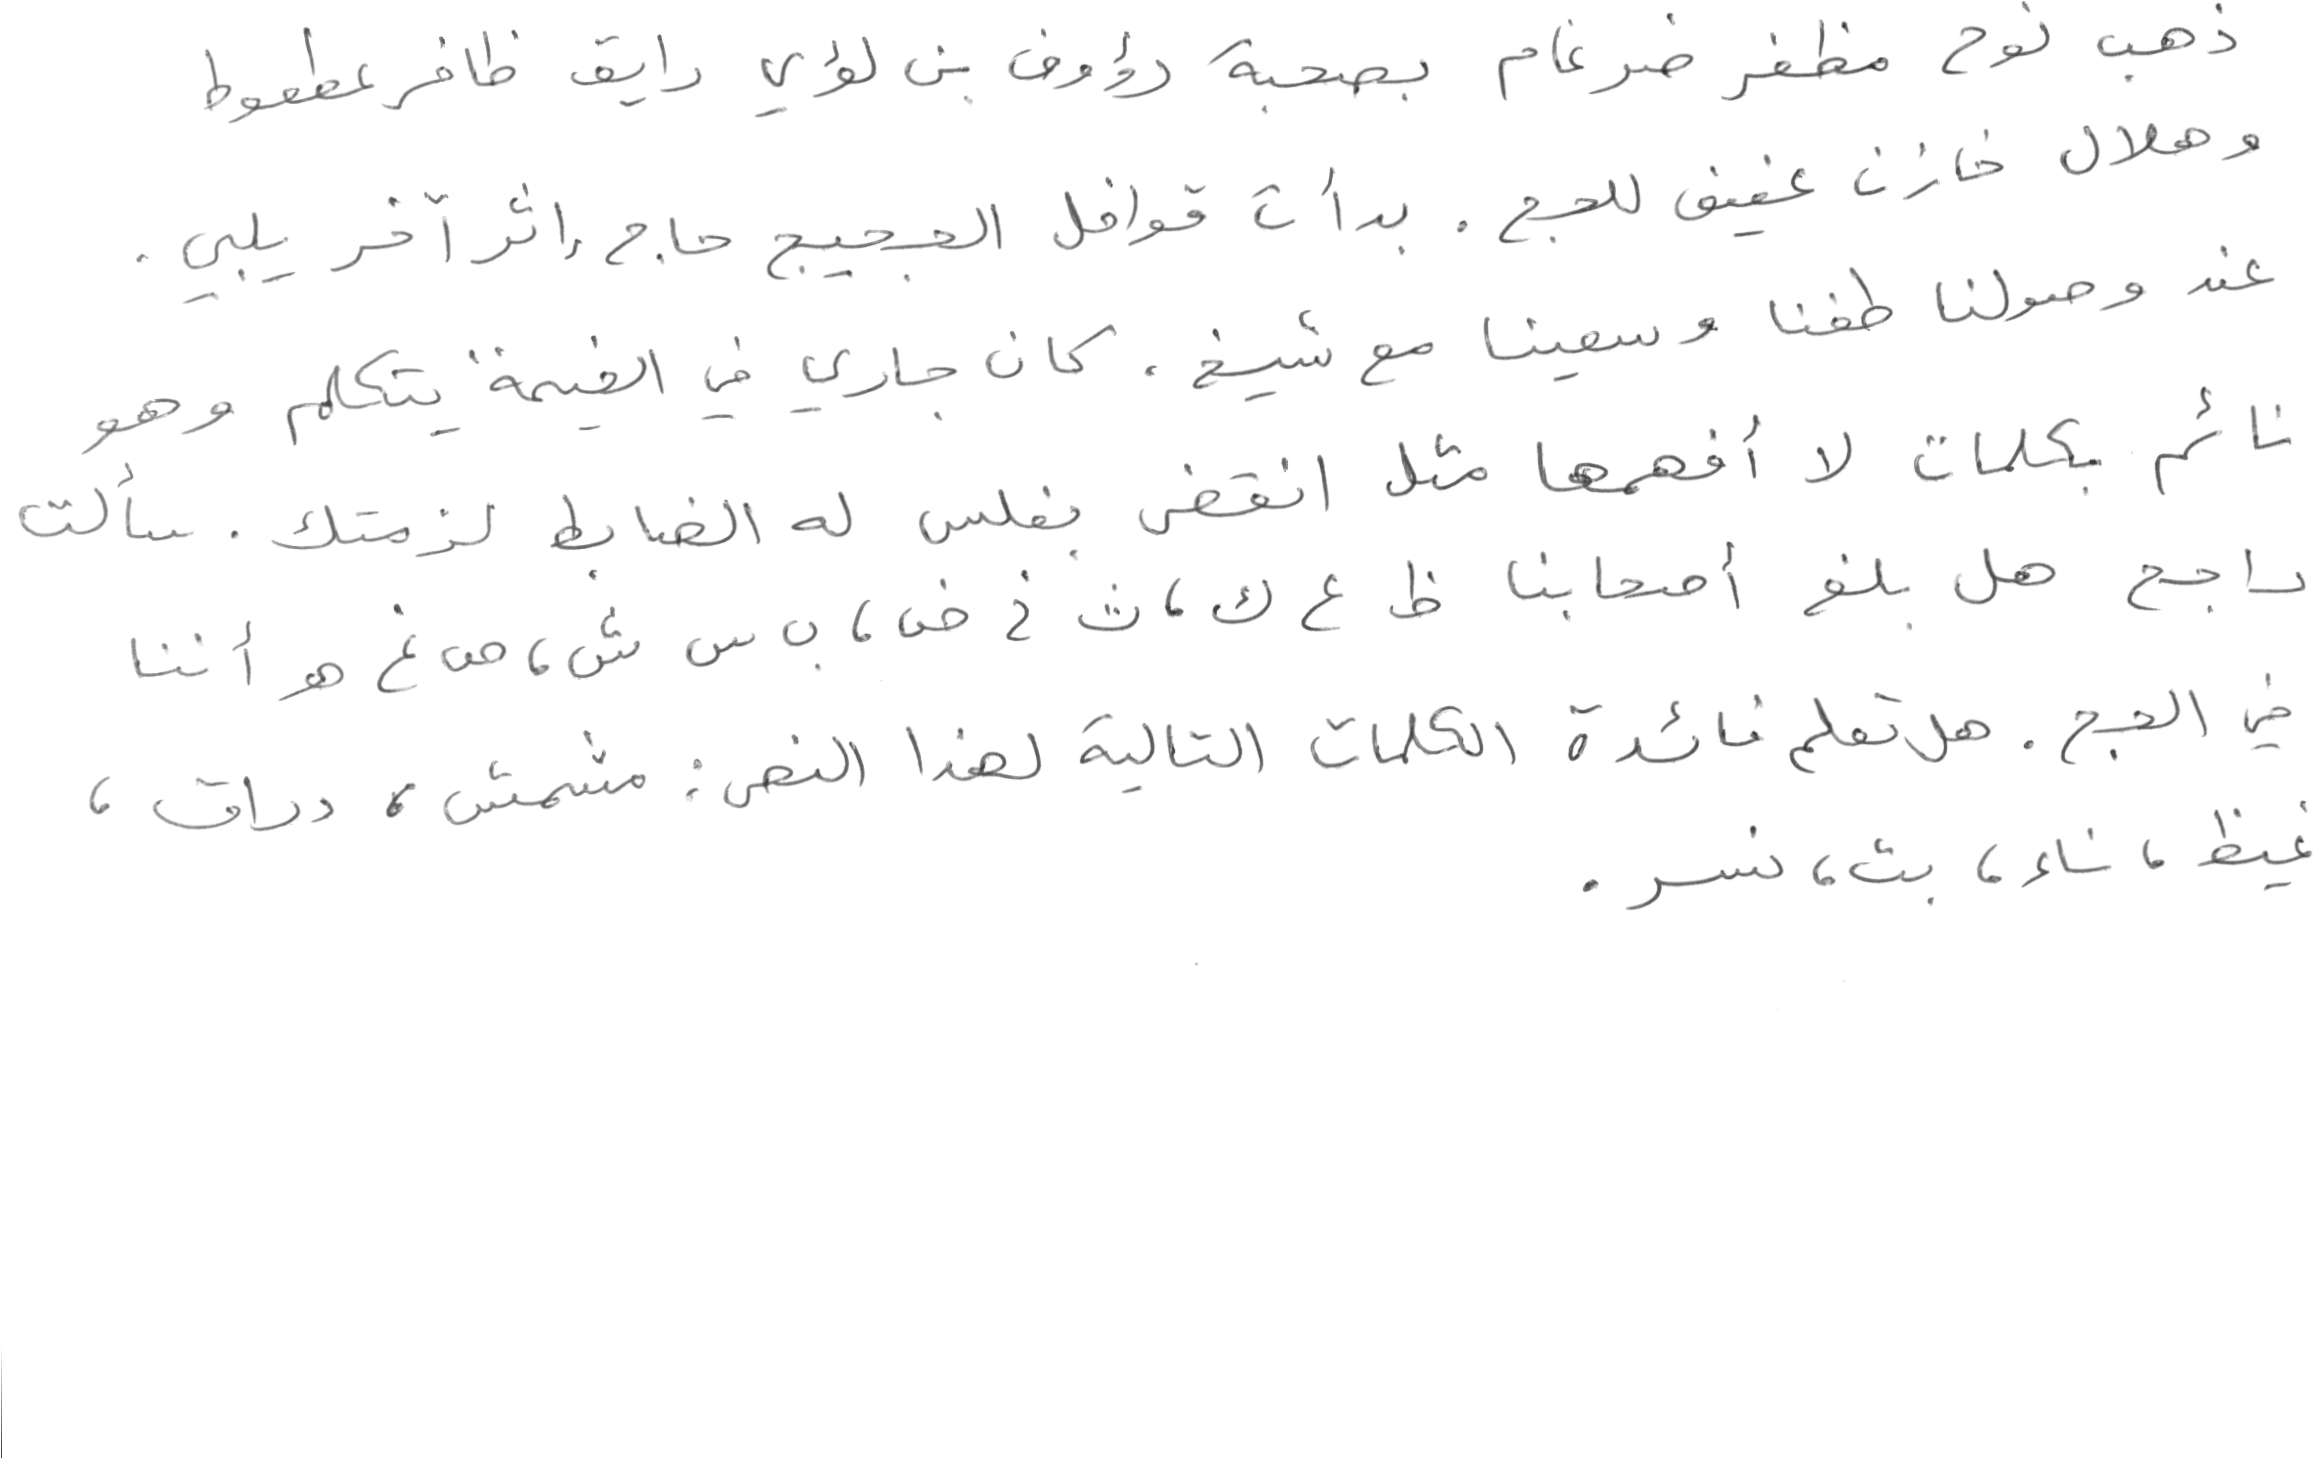 ذهب نوح مظفر ضرغام بصحبة رؤوف بن لؤي رايق ظافر عطعوط
وهلال خازن عفيف للحج . بدأت قوافل الحجيج حاج إثر آخر يلبي .
عند وصولنا طفنا وسعينا مع شيخ . كان جاري في الخيمة يتكلم وهو
نائم بكلمات لا أفهمها مثل انقض بغلس له الضابط لزمتك . سألت
راجح هل بلغ أصحابنا ظ ع ك ، ث خ ض ، ب س ش ، ص غ هـ أننا
في الحج . هل تعلم فائدة الكلمات التالية لهذا النص : مشمش ، دراق ،
غيظ ، شاء ، بث ، نسر .